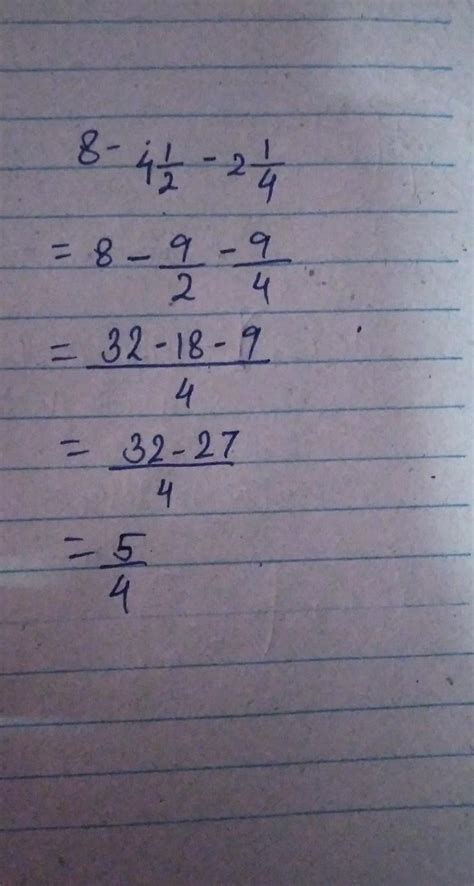 8 - 4 1/2 - 2 1/4
= 8 - 9/2 - 9/4
= 32 - 18 - 9 / 4
= 32 - 27 / 4
= 5/4